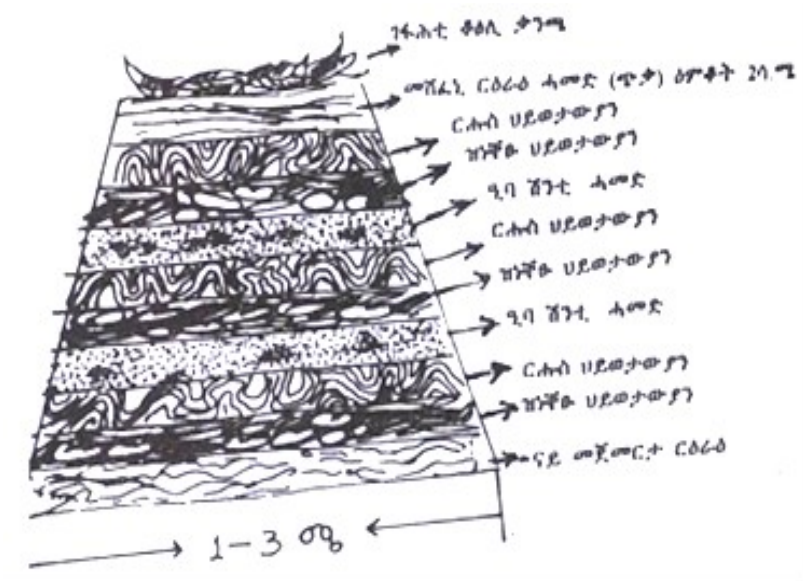 ገፋሕቲ ቆፅሊ ቃንጫ
መሸፈኒ ርፅራፅ ሓመድ (ጭቃ) ዕምቆት 2ሳ.ሜ
ርሑስ ህይወታውያን
ዝነቐፁ ህይወታውያን
ዒባ ሽንቲ ሓመድ
ርሑስ ህይወታውያን
ዝነቐፁ ህይወታውያን
ዒባ ሽንቲ ሓመድ
ርሑስ ህይወታውያን
ዝነቐፁ ህይወታውያን
ናይ መጀመርታ ርፅራፅ
1-3 ሜ